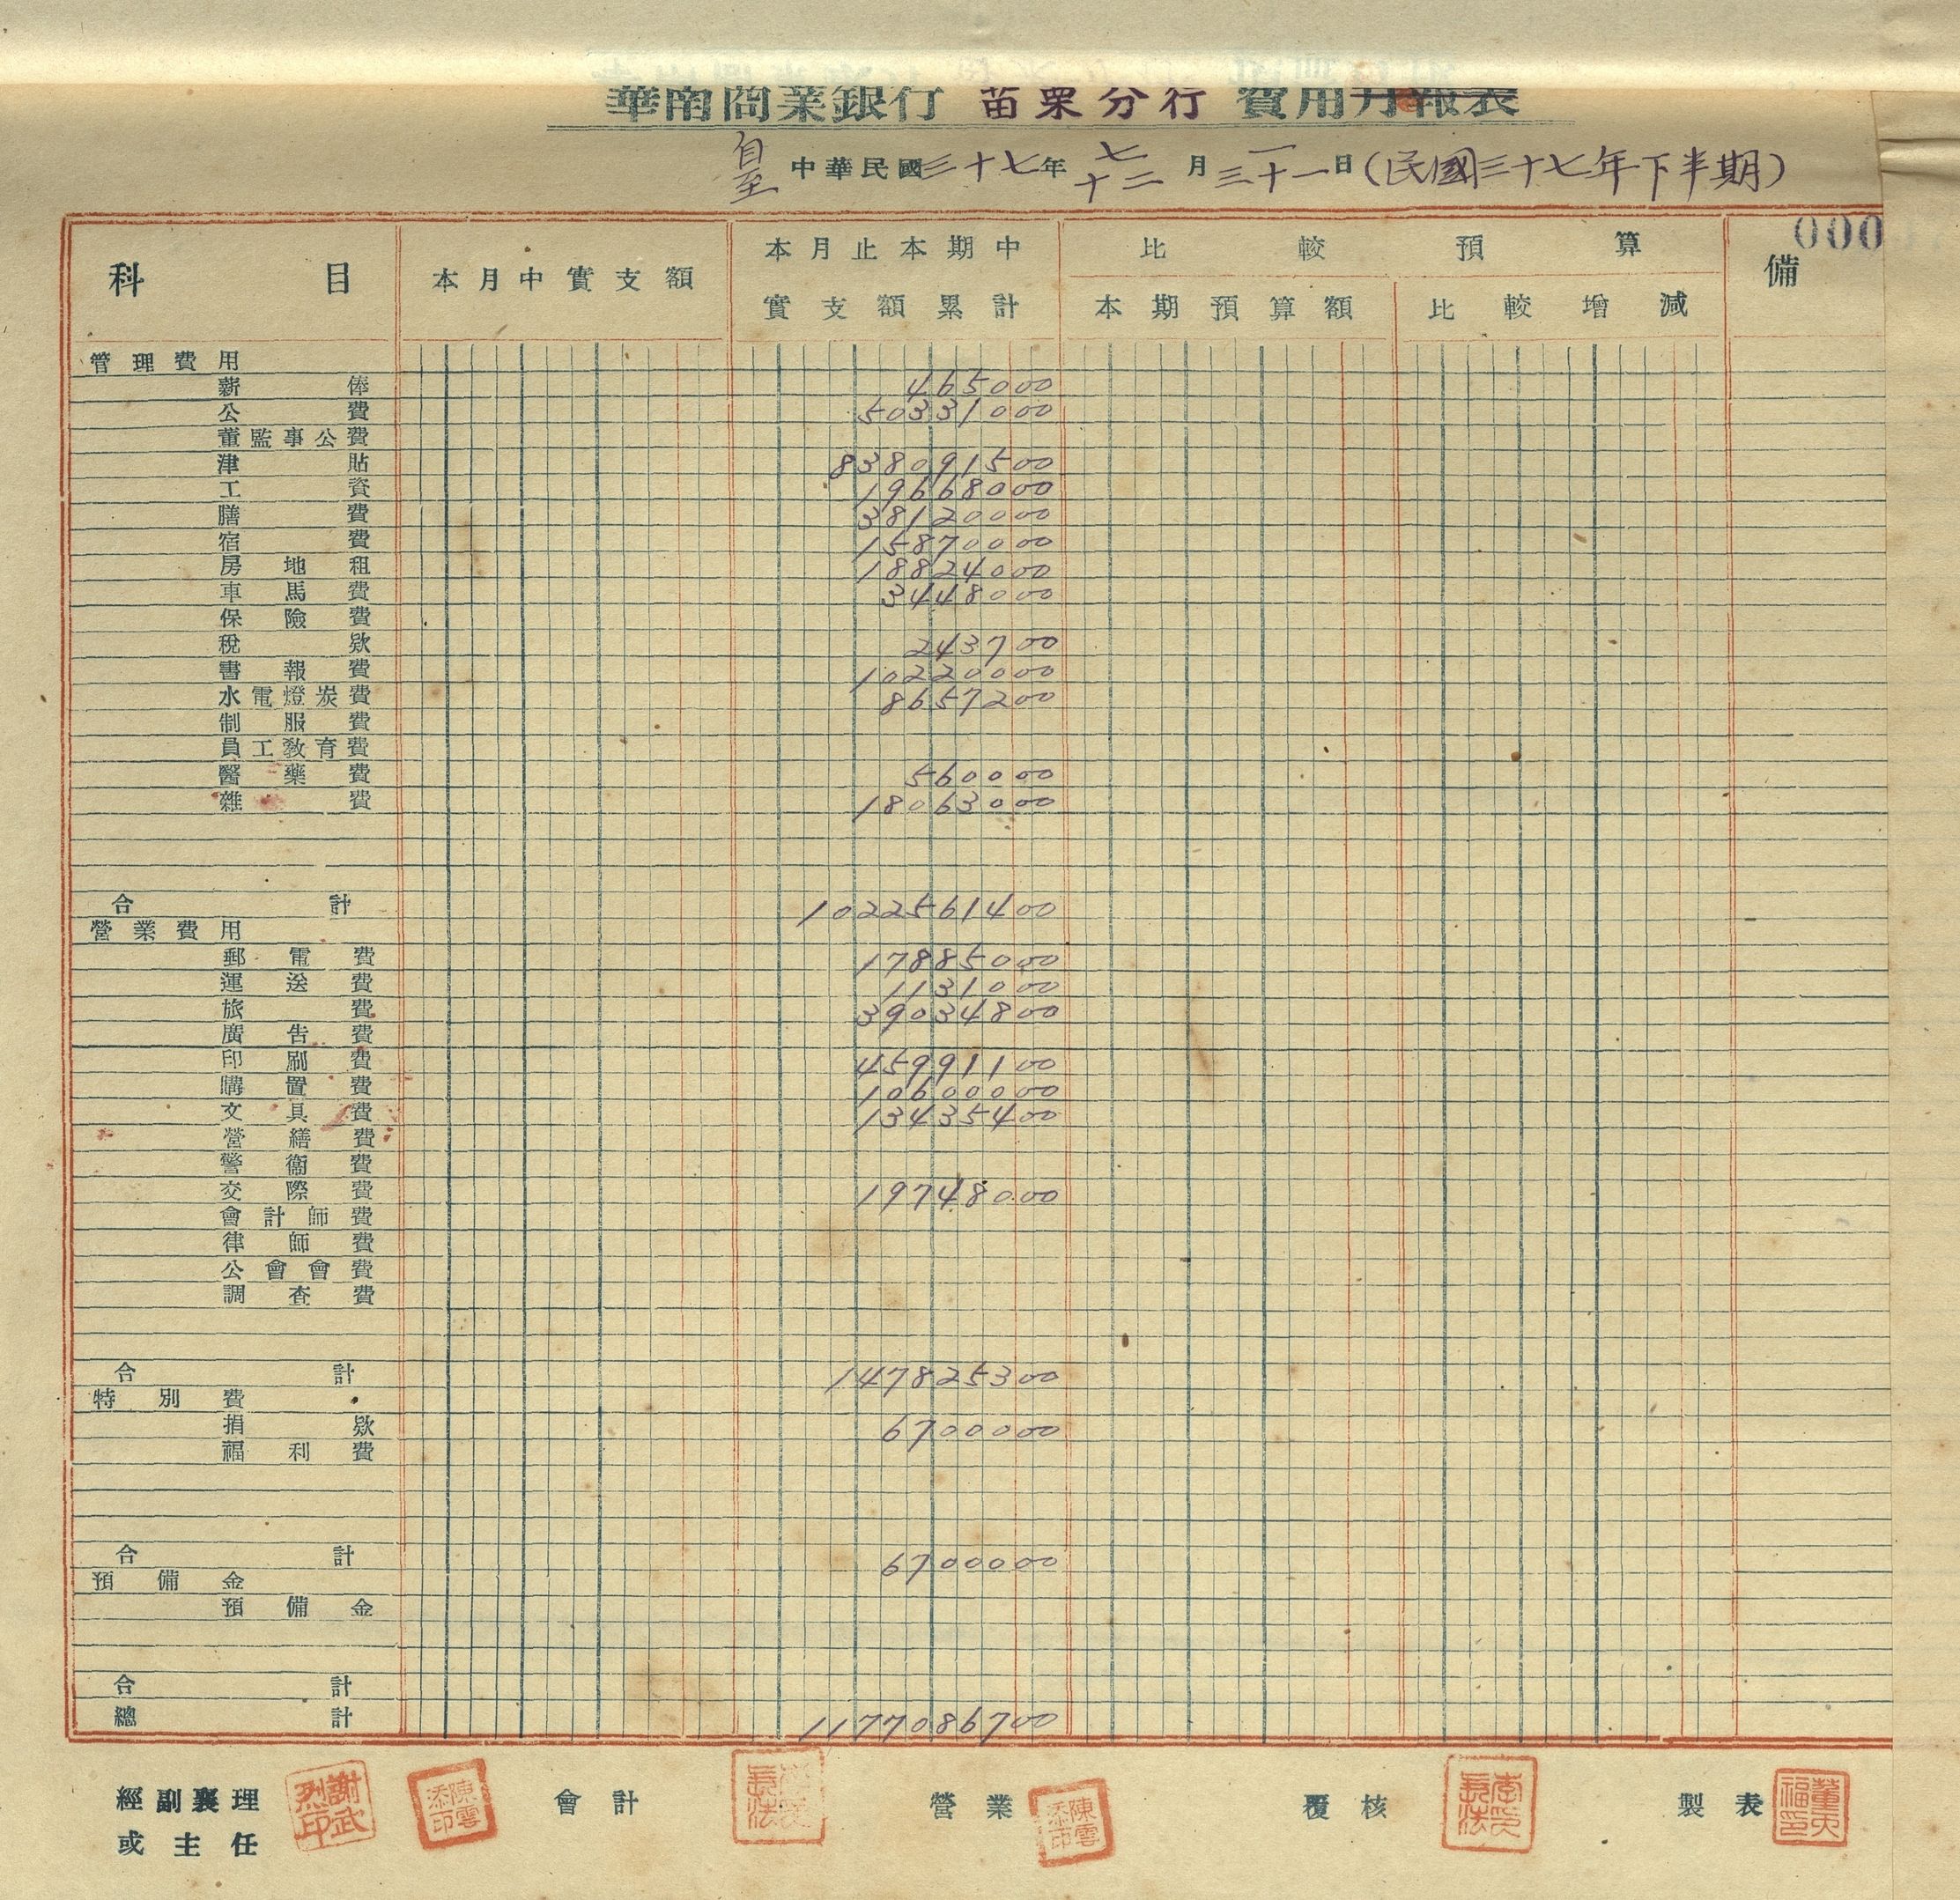 華南商業銀行 苗栗分行 費用月報表
自至 中華民國三十七年 七十二月 一三十一日(民國三十七年下半期)
000
科目 本月中實支額 本月止本期中實支額累計 比較預算 備
本期預算額 比較增減
管理費用
薪俸 465000
公費 50331000
董監事公費
津貼 838091500
工資 19668000
膳費 38120000
宿費 15870000
房地租 18824000
車馬費 3448000
保險費
稅欵 243700
書報費 10220000
水電燈炭費 8657200
制服費
員工教育費
醫藥費 560000
雜費 18063000
合計 1022561400
營業費用
郵電費 17885000
運送費 1131000
旅費 39034800
廣告費
印刷費 45991100
購置費 10600000
文具費 13435400
營繕費
警衞費
交際費 19748000
會計師費
律師費
公會會費
調查費
合計 147825300
特別費
捐欵 6700000
福利費
合計 6700000
預備金
預備金
合計
總計 1177086700
經副襄理或主任 謝武烈印 陳雲添印 會計 營業 陳雲添印 覆核 製表